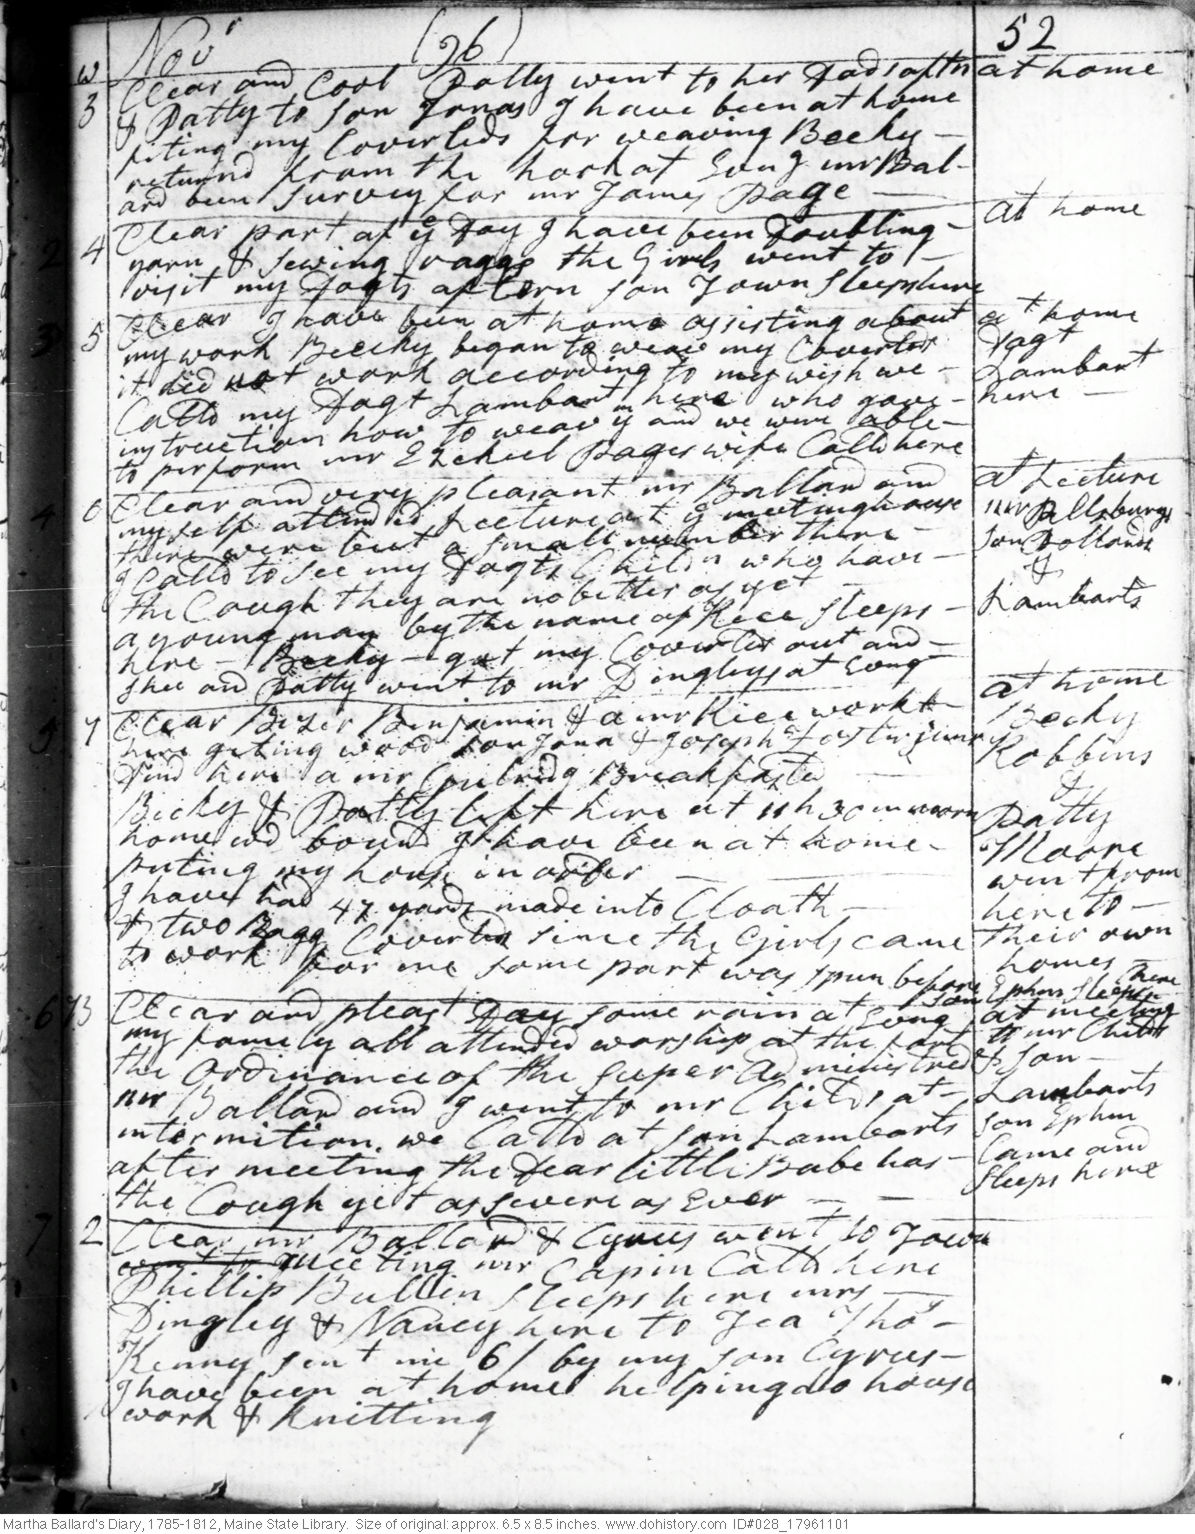 Novr (96) 52
w
3 Clear and Cool Polly went to her Dads aftn at home
& Patty to son Jonas I have been at home
fiting my Coverleds for weaving Becky –
returnd from the hook at Evng mr Bal-
ard been survey for mr James Page —
2 4 Clear part of ye Day I have been Doubling – at home
yarn & sewing raggs the Girls went to –
visit my Dagts aftern son Town sleeps here
3 5 Clear I have been at home assisting about at home
my work Beecky began to weave my Coverled Dagt
it did not work according to my wish we – Lambart
Calld my Dagt Lambart here who gave – here –
instruction how to weav it and we were able –
to perform mr Ezekiel Pages wife Calld here
4 6 Clear and very pleasant mr Ballard and at Lecture
my self attended Lecture at ye meetinghouse mr Pillsburys
there were but a small number there – son Pollards
I Calld to see my Dagts Childn who have – &
the Cough they are no better as yet – Lambarts
a young man by the name of Rice sleeps –
here – Becky – got my Coverled out and –
shee and Patty went to mr Dingleys at Evng
5 7 Clear Benjamin & a mr Rice workt at home
here geting wood son Jona & Joseph Becky
Dind here a mr Breakfasted — Robbins
Becky & Patty left here at 11 h 30 m morn &
home wd bound I have been at home – Patty
puting my house in order — Moore
I have had 47 yards made into Cloath – went from
& two Bagg Coverled since the Girls came here to –
to work for me some part was spun before their own
homes
son Ephm sleeps here
6 73 Clear and pleast Day some rain at Evng at meeting
my family all attended worship at the fort to mr Childs
the Ordinance of the super Administred & son –
mr Ballard and I went to mr Childs at – Lambarts
intermition. we Calld at son Lambarts son Ephm
after meeting the Dear little Babe has – Came and
the Cough yet as severe as Ever — — sleeps here
7 2 Clear mr Ballard & Cyrus went to Town
went to meeting mr Capin Calld here
Phillip Bullin sleeps here mrs —
Dingley & Nancy here to Tea Thos –
Kenny sent me 6/ by my son Cyrus –
I have been at home helping do house
work & Knitting
Martha Ballard's Diary, 1785-1812, Maine State Library. Size of original: approx. 6.5 x 8.5 inches. www.dohistory.com ID#028_17961101